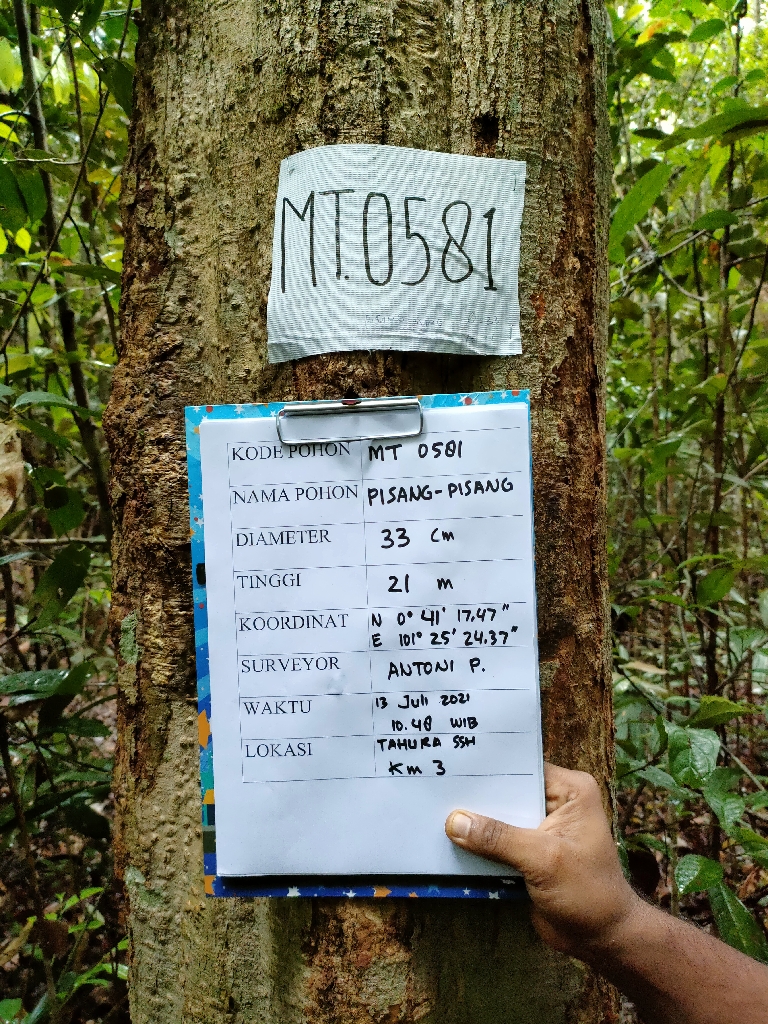 MT.0581
KODE POHON MT 0581
NAMA POHON PISANG-PISANG
DIAMETER 33 cm
TINGGI 21 m
KOORDINAT N 0° 41' 17.47"
E 101° 25' 24.37"
SURVEYOR ANTONI P.
WAKTU 13 Juli 2021
10.48 WIB
LOKASI TAHURA SSH
Km 3